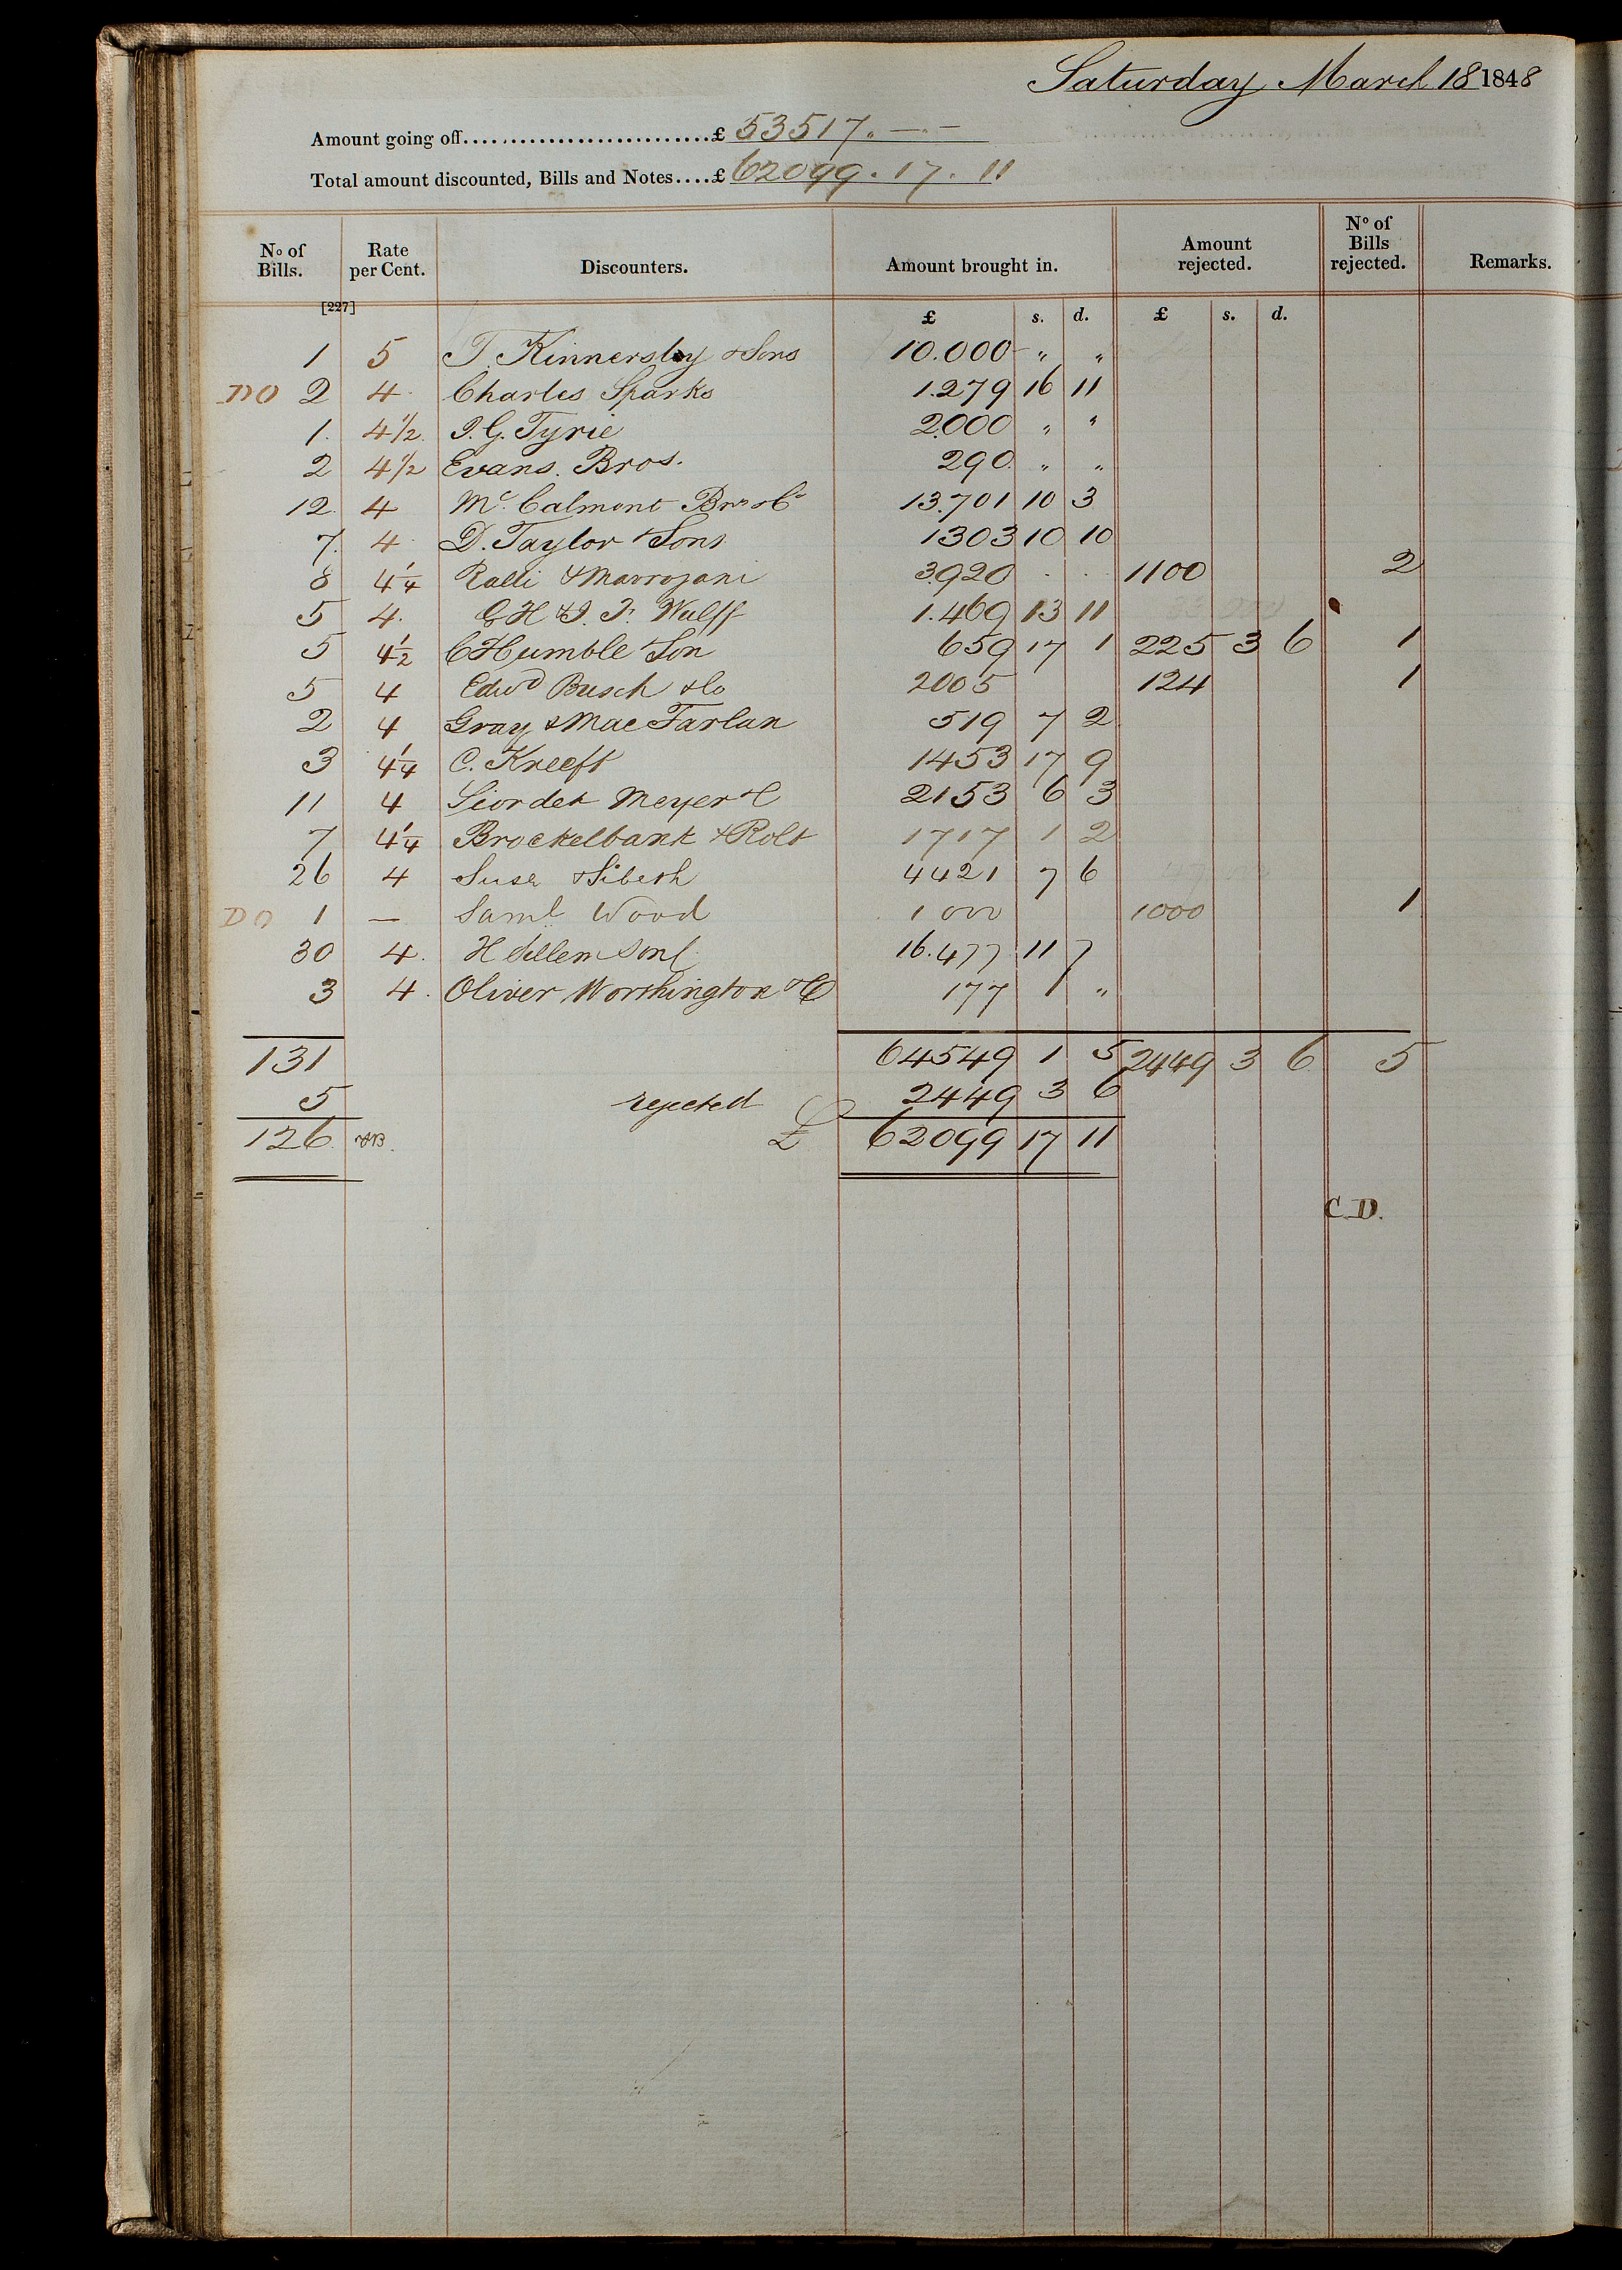 Saturday March 18 1848
Amount going off............................£ 53517. — . —
Total amount discounted, Bills and Notes....£ 62099 . 17 . 11
No of Bills. Rate per Cent. Discounters. Amount brought in. Amount rejected. No of Bills rejected. Remarks.
[227]
£ s. d. £ s. d.
1 5 T. Kinnersley & Sons 10.000 " "
DO 2 4 Charles Sparks 1.279 16 11
1. 4 1/2 J. G. Tyrie 2000 " "
2 4 1/2 Evans. Bros. 290 " "
12 4 Mc Calmont Bros & Co 13.701 10 3
7. 4 D. Taylor & Sons 1303 10 10
8 4 1/4 Ralli & Mavrojani 3920 . . 1100 2
5 4. G H & J. F. Wulff 1.469 13 11
5 4 1/2 C Humble & Son 659 17 1 225 3 6 1
5 4 Edwd Busch & Co 2005 124 1
2 4 Gray & Mac Farlan 519 7 2
3 4 1/4 C. Kreeft 1453 17 9
11 4 Siordet Meyer & C 2153 6 3
7 4 1/4 Brockelbank & Rolt 1717 1 2
26 4 Suse & Sibeth 4421 7 6
DO 1 — Saml Wood 1000 1000 1
30 4. H 16.477 11 7
3 4. Oliver Worthington & Co 177 1 "
131 64549 1 5 2449 3 6 5
5 rejected 2449 3 6
126 £ 62099 17 11
C.D.